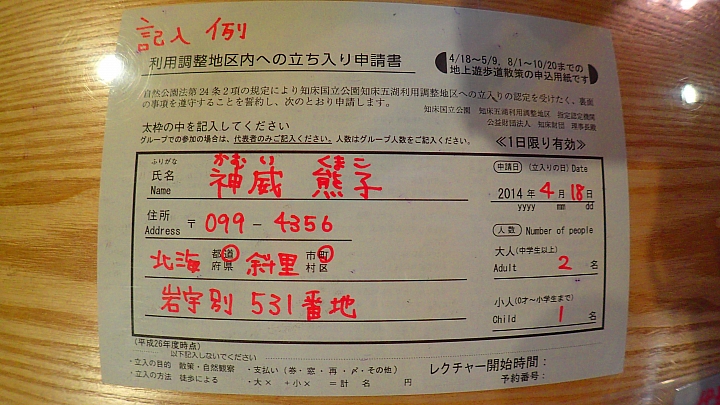 記入例
利用調整地区内への立ち入り申請書
4/18～5/9、8/1～10/20までの
地上遊歩道散策の申込用紙です
自然公園法第24条2項の規定により知床国立公園知床五湖利用調整地区への立入りの認定を受けたく、裏面
の事項を遵守することを誓約し、次のとおり申請します。
知床国立公園 知床五湖利用調整地区 指定認定機関
公益財団法人 知床財団 理事長殿
太枠の中を記入してください
グループでの参加の場合は、代表者のみご記入ください。人数はグループ人数をご記入ください。
≪1日限り有効≫
ふりがな かむい くまこ
氏名 神威 熊子
Name
申請日 (立入りの日) Date
2014年 4月 18日
yyyy mm dd
住所 〒099-4356
Address
人数 Number of people
北海 都道府県 斜里 市町村区
大人(中学生以上)
Adult 2 名
岩宇別 531番地
小人(0才～小学生まで)
Child 1 名
(平成26年度時点)
以下記入しないでください
・立入の目的 散策・自然観察 ・支払い(券・窓・再・〆・その他)
・立入の方法 徒歩による ・大× +小× =計 名 円
レクチャー開始時間：
予約番号：